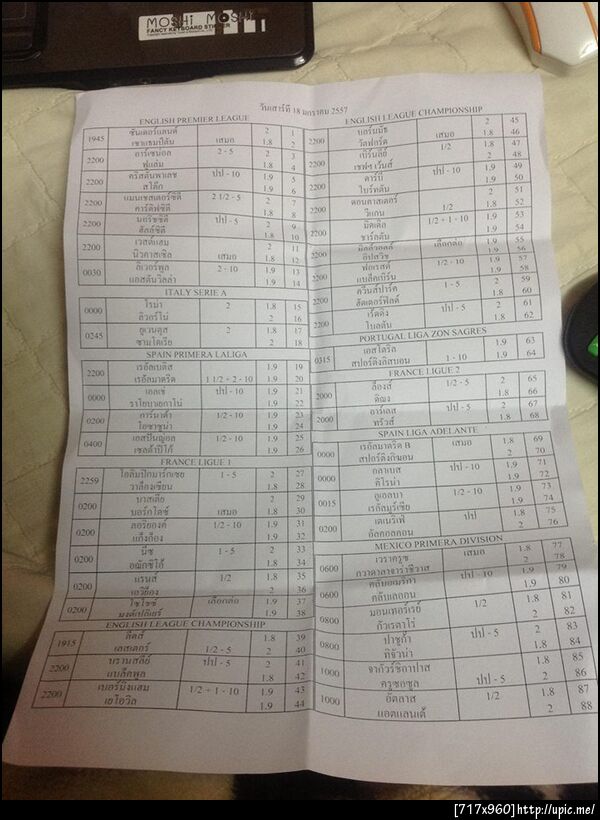 MOSHI MOSHI
FANCY KEYBOARD STICKER
วันเสาร์ที่ 18 มกราคม 2557
ENGLISH PREMIER LEAGUE
1945 ซันเดอร์แลนด์ 2 1
เซาแธมป์ตัน เสมอ 1.8 2
2200 อาร์เซน่อล 2 - 5 2 3
ฟูแล่ม 1.8 4
2200 คริสตัลพาเลซ ปป - 10 1.9 5
สโต๊ก 1.9 6
2200 แมนเชสเตอร์ซิตี้ 2 1/2 - 5 2 7
คาร์ดิฟซิตี้ 1.8 8
2200 นอริชซิตี้ ปป - 5 2 9
ฮัลล์ซิตี้ 1.8 10
2200 เวสต์แฮม 2 11
นิวคาสเซิล เสมอ 1.8 12
0030 ลิเวอร์พูล 2 - 10 1.9 13
แอสตันวิลล่า 1.9 14
ITALY SERIE A
0000 โรม่า 2 1.8 15
ลิวอร์โน่ 2 16
0245 ยูเวนตุส 2 1.8 17
ซามโดเรีย 2 18
SPAIN PRIMERA LALIGA
2200 เรอัลเบติส 1.9 19
เรอัลมาดริด 1 1/2 + 2 - 10 1.9 20
0000 เอลเช่ ปป - 10 1.9 21
ราโยบาเยกาโน่ 1.9 22
0200 กรานาด้า 1/2 - 10 1.9 23
โอซาซูน่า 1.9 24
0400 เอสปันญ่อล 1/2 - 10 1.9 25
เซลต้าบีโก้ 1.9 26
FRANCE LIGUE 1
2259 โอลิมปิกมาร์กเซย 1 - 5 2 27
วาล็องเซียน 1.8 28
0200 บาสเตีย 2 29
บอร์กโดซ์ เสมอ 1.8 30
0200 ลอริยองค์ 1/2 - 10 1.9 31
แก็งก็อง 1.9 32
0200 นีซ 1 - 5 2 33
อฌักซิโอ้ 1.8 34
0200 แรนส์ 1/2 1.8 35
เอวิยอง 2 36
0200 โซโชซ์ เลือกต่อ 1.9 37
มงต์เปลิเยร์ 1.9 38
ENGLISH LEAGUE CHAMPIONSHIP
1915 ลีดส์ 1.8 39
เลสเตอร์ 1/2 - 5 2 40
2200 บรานสลีย์ ปป - 5 2 41
แบล็คพูล 1.8 42
2200 เบอร์มิ่งแฮม 1/2 + 1 - 10 1.9 43
เยโอวิล 1.9 44
ENGLISH LEAGUE CHAMPIONSHIP
2200 บอร์นมัธ 2 45
วัตฟอร์ด เสมอ 1.8 46
2200 เบิร์นลี่ย์ 1/2 1.8 47
เชฟฯ เว้นส์ 2 48
2200 ดาร์บี้ ปป - 10 1.9 49
ไบร์ทตัน 1.9 50
2200 ดอนคาสเตอร์ 2 51
วีแกน 1/2 1.8 52
2200 มิดเดิล 1/2 + 1 - 10 1.9 53
ชาร์ลตัน 1.9 54
2200 มิลล์วอลล์ เลือกต่อ 1.9 55
อิปสวิช 1.9 56
2200 ฟอเรสต์ 1/2 - 10 1.9 57
แบล็คเบิร์น 1.9 58
2200 ควีนส์ปาร์ค 1 - 5 2 59
ฮัดเดอร์ฟิลด์ 1.8 60
2200 เร้ดดิ้ง ปป - 5 2 61
โบลตัน 1.8 62
PORTUGAL LIGA ZON SAGRES
0315 เอสโตริล 1.9 63
สปอร์ติ้งลิสบอน 1 - 10 1.9 64
FRANCE LIGUE 2
2000 ล็องส์ 1/2 - 5 2 65
ดิฌง 1.8 66
2000 อาร์เลส ปป - 5 2 67
ทรัวส์ 1.8 68
SPAIN LIGA ADELANTE
0000 เรอัลมาดริด B เสมอ 1.8 69
สปอร์ติ้งกิฆอน 2 70
0000 อลาเบส ปป - 10 1.9 71
คิโรน่า 1.9 72
0015 อูเอลบา 1/2 - 10 1.9 73
เรอัลมูร์เซีย 1.9 74
0200 เตเนริเฟ่ ปป 1.8 75
อัลกอลกอน 2 76
MEXICO PRIMERA DIVISION
0600 เวราครูซ เสมอ 1.8 77
กวาดาลาจาร่าชีวาส 2 78
0600 คลับอเมริกา ปป - 10 1.9 79
คลับเลกอน 1.9 80
0800 มอนเทอร์เรย์ 1/2 1.8 81
กัวเรตาโร่ 2 82
0800 ปาชูก้า ปป - 5 2 83
ทิจัวน่า 1.8 84
1000 จากัวร์ชิอาปาส 1.8 85
ครูซอซูล ปป - 5 2 86
1000 อัตลาส 1/2 1.8 87
แอตแลนเต้ 2 88
[717x960]http://upic.me/